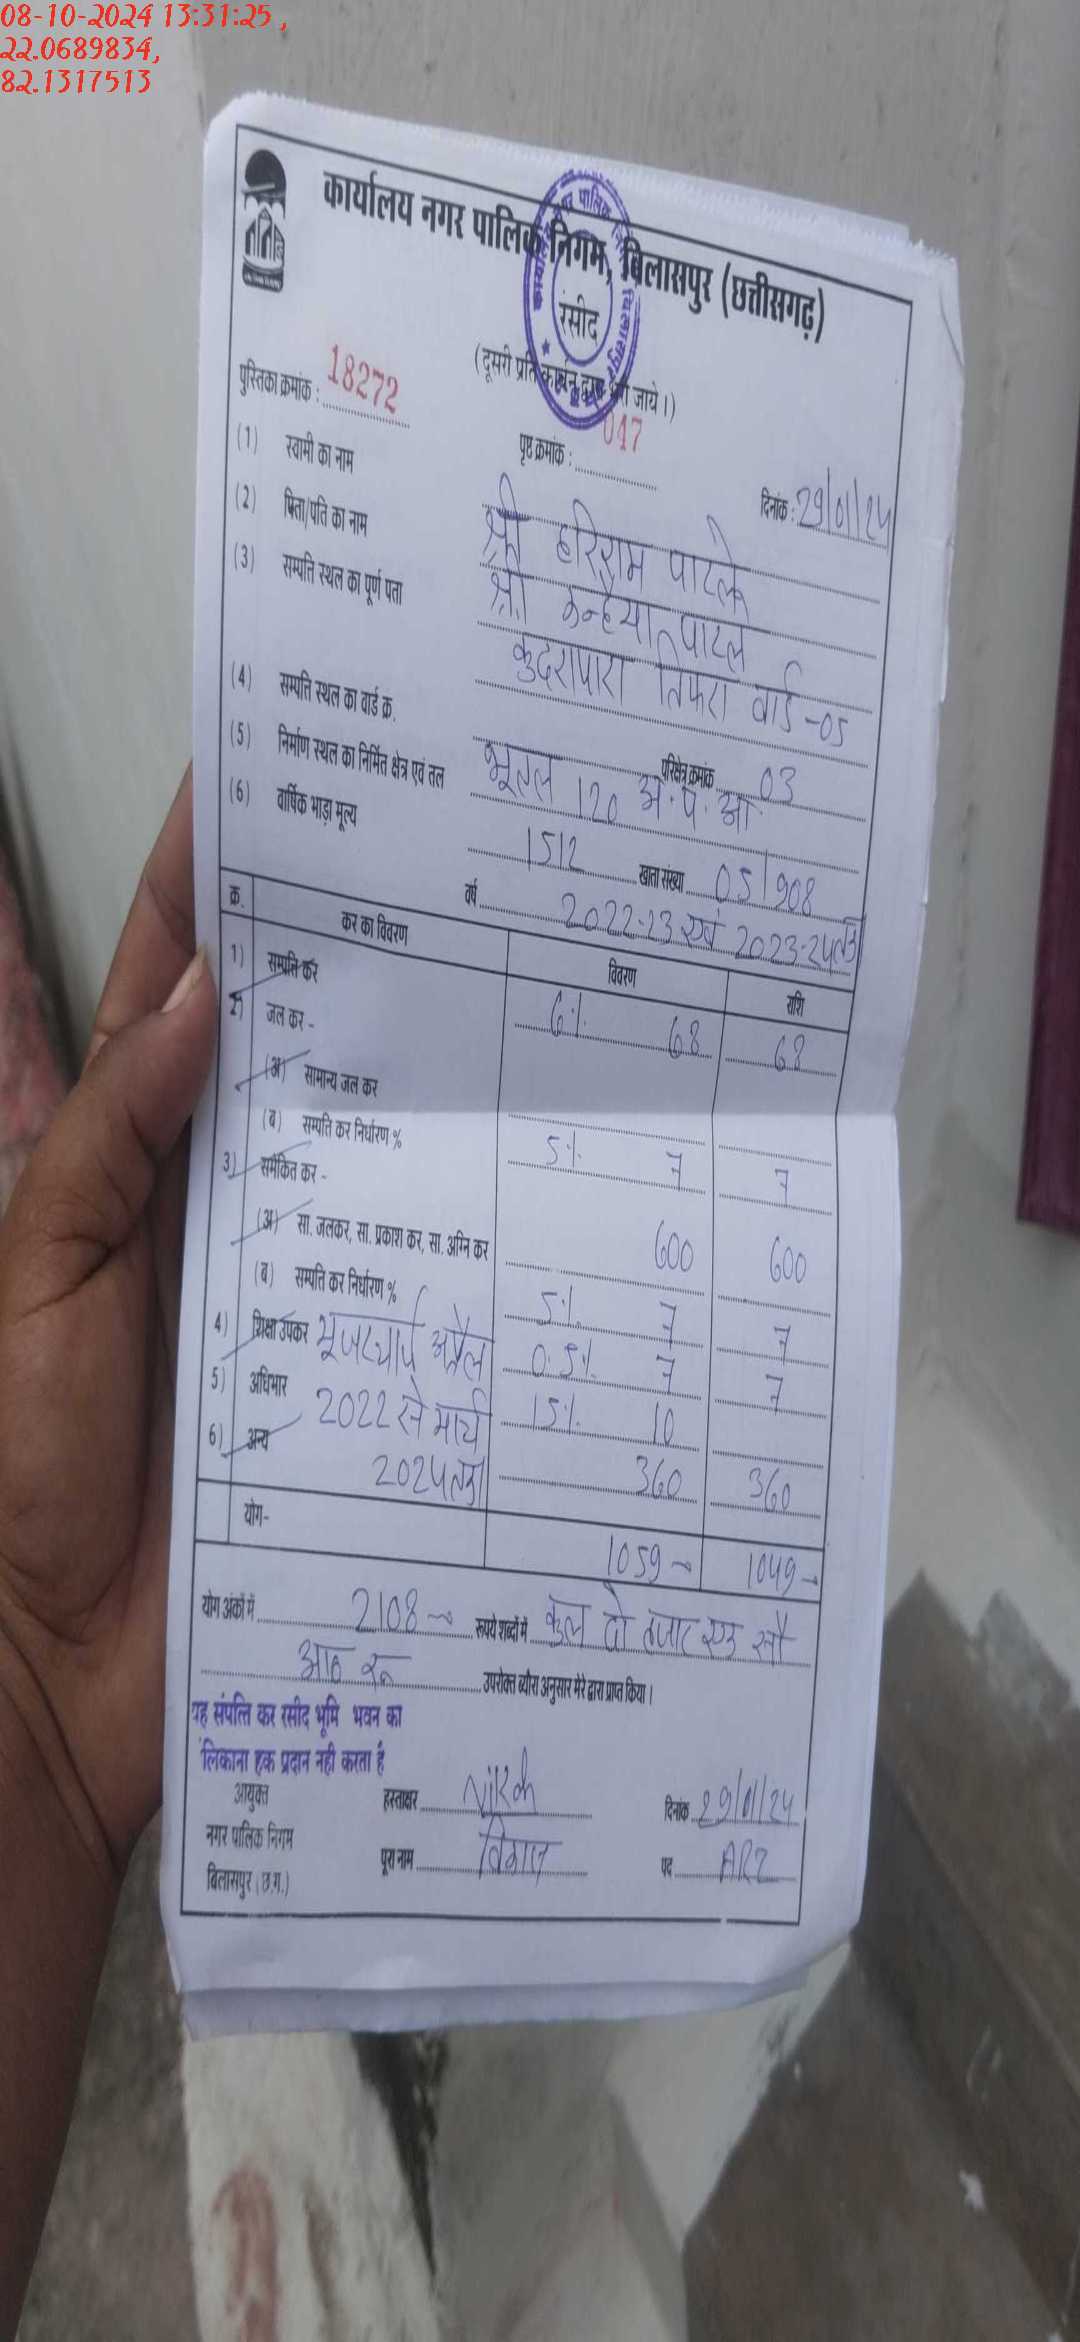 08-10-2024 13:31:25 ,
22.0689834,
82.1317513
कार्यालय नगर पालिक निगम, बिलासपुर (छत्तीसगढ़)
रसीद
(दूसरी प्रति कार्बन द्वारा भरी जाये।)
पुस्तिका क्रमांक : 18272
पृष्ठ क्रमांक : 047
दिनांक : 29/01/24
(1) स्वामी का नाम श्री हरिराम पाटले
(2) पिता/पति का नाम श्री कन्हैया पाटले
(3) सम्पत्ति स्थल का पूर्ण पता कुदरापारा तिफरा वार्ड -05
(4) सम्पत्ति स्थल का वार्ड क्र. परिक्षेत्र क्रमांक 03
(5) निर्माण स्थल का निर्मित क्षेत्र एवं तल भूतल 120 अ. प. आ.
(6) वार्षिक भाड़ा मूल्य 1512 खाता संख्या 05/908
वर्ष 2022-23 एवं 2023-24 तक
क्र. कर का विवरण विवरण राशि
1) सम्पत्ति कर 6% 68 68
2) जल कर -
(अ) सामान्य जल कर
(ब) सम्पति कर निर्धारण % 5% 7 7
3) समेकित कर -
(अ) सा. जलकर, सा. प्रकाश कर, सा. अग्नि कर 600 600
(ब) सम्पति कर निर्धारण % 5% 7 7
4) शिक्षा उपकर 0.5% 7 7
5) अधिभार 15% 10
6) अन्य 360 360
यूजरचार्ज अप्रैल
2022 से मार्च
2024 तक
योग- 1059 1049
योग अंकों में 2108 रूपये शब्दों में कुल दो हजार एक सौ
आठ रू उपरोक्त ब्यौरा अनुसार मेरे द्वारा प्राप्त किया।
यह संपत्ति कर रसीद भूमि भवन का
लिकाना हक प्रदान नही करता है
आयुक्त
नगर पालिक निगम
बिलासपुर (छ.ग.)
हस्ताक्षर दिनांक 29/01/24
पूरा नाम पद ARI